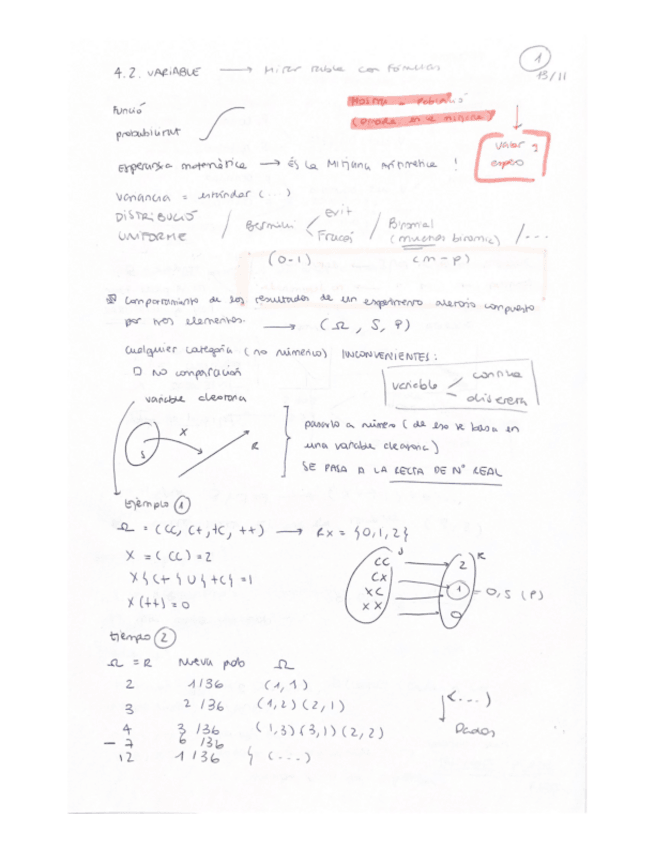 4.2. VARIABLE → Mirar tabla con fórmulas
1
13/11
Funció
probabilitat
valor y
Esperança matemàtica → És la Mitjana Aritmètica !
Variancia = estándar (...)
DISTRIBUCIÓ
UNIFORME / Bernoulli < exit Fracàs / Binomial (muchas binomic) / ...
(0-1) (n-p)
Comportamiento de los resultados de un experimento aleatorio compuesto
por tres elementos. → (Ω, S, P)
Cualquier categoría (no númerico) INCONVENIENTES:
□ NO comparación
variable < continua discreta
variable aleatoria
S X R
pasarlo a número (de eso se basa en
una variable aleatoria)
SE PASA A LA RECTA DE Nº REAL
Ejemplo 1
Ω = (CC, C+, +C, ++) → Rx = {0,1,2}
X = (CC) = 2
X{C+} U {+C} = 1
X(++) = 0
CC 2
CX
XC 1 = 0,5 (P)
XX 0
Ejemplo 2
Ω = R Nueva prob Ω
2 1/36 (1,1)
3 2/36 (1,2)(2,1)
4 3/36 (1,3)(3,1)(2,2)
- 7 6/36
12 1/36 { (...)
(...)
Dados